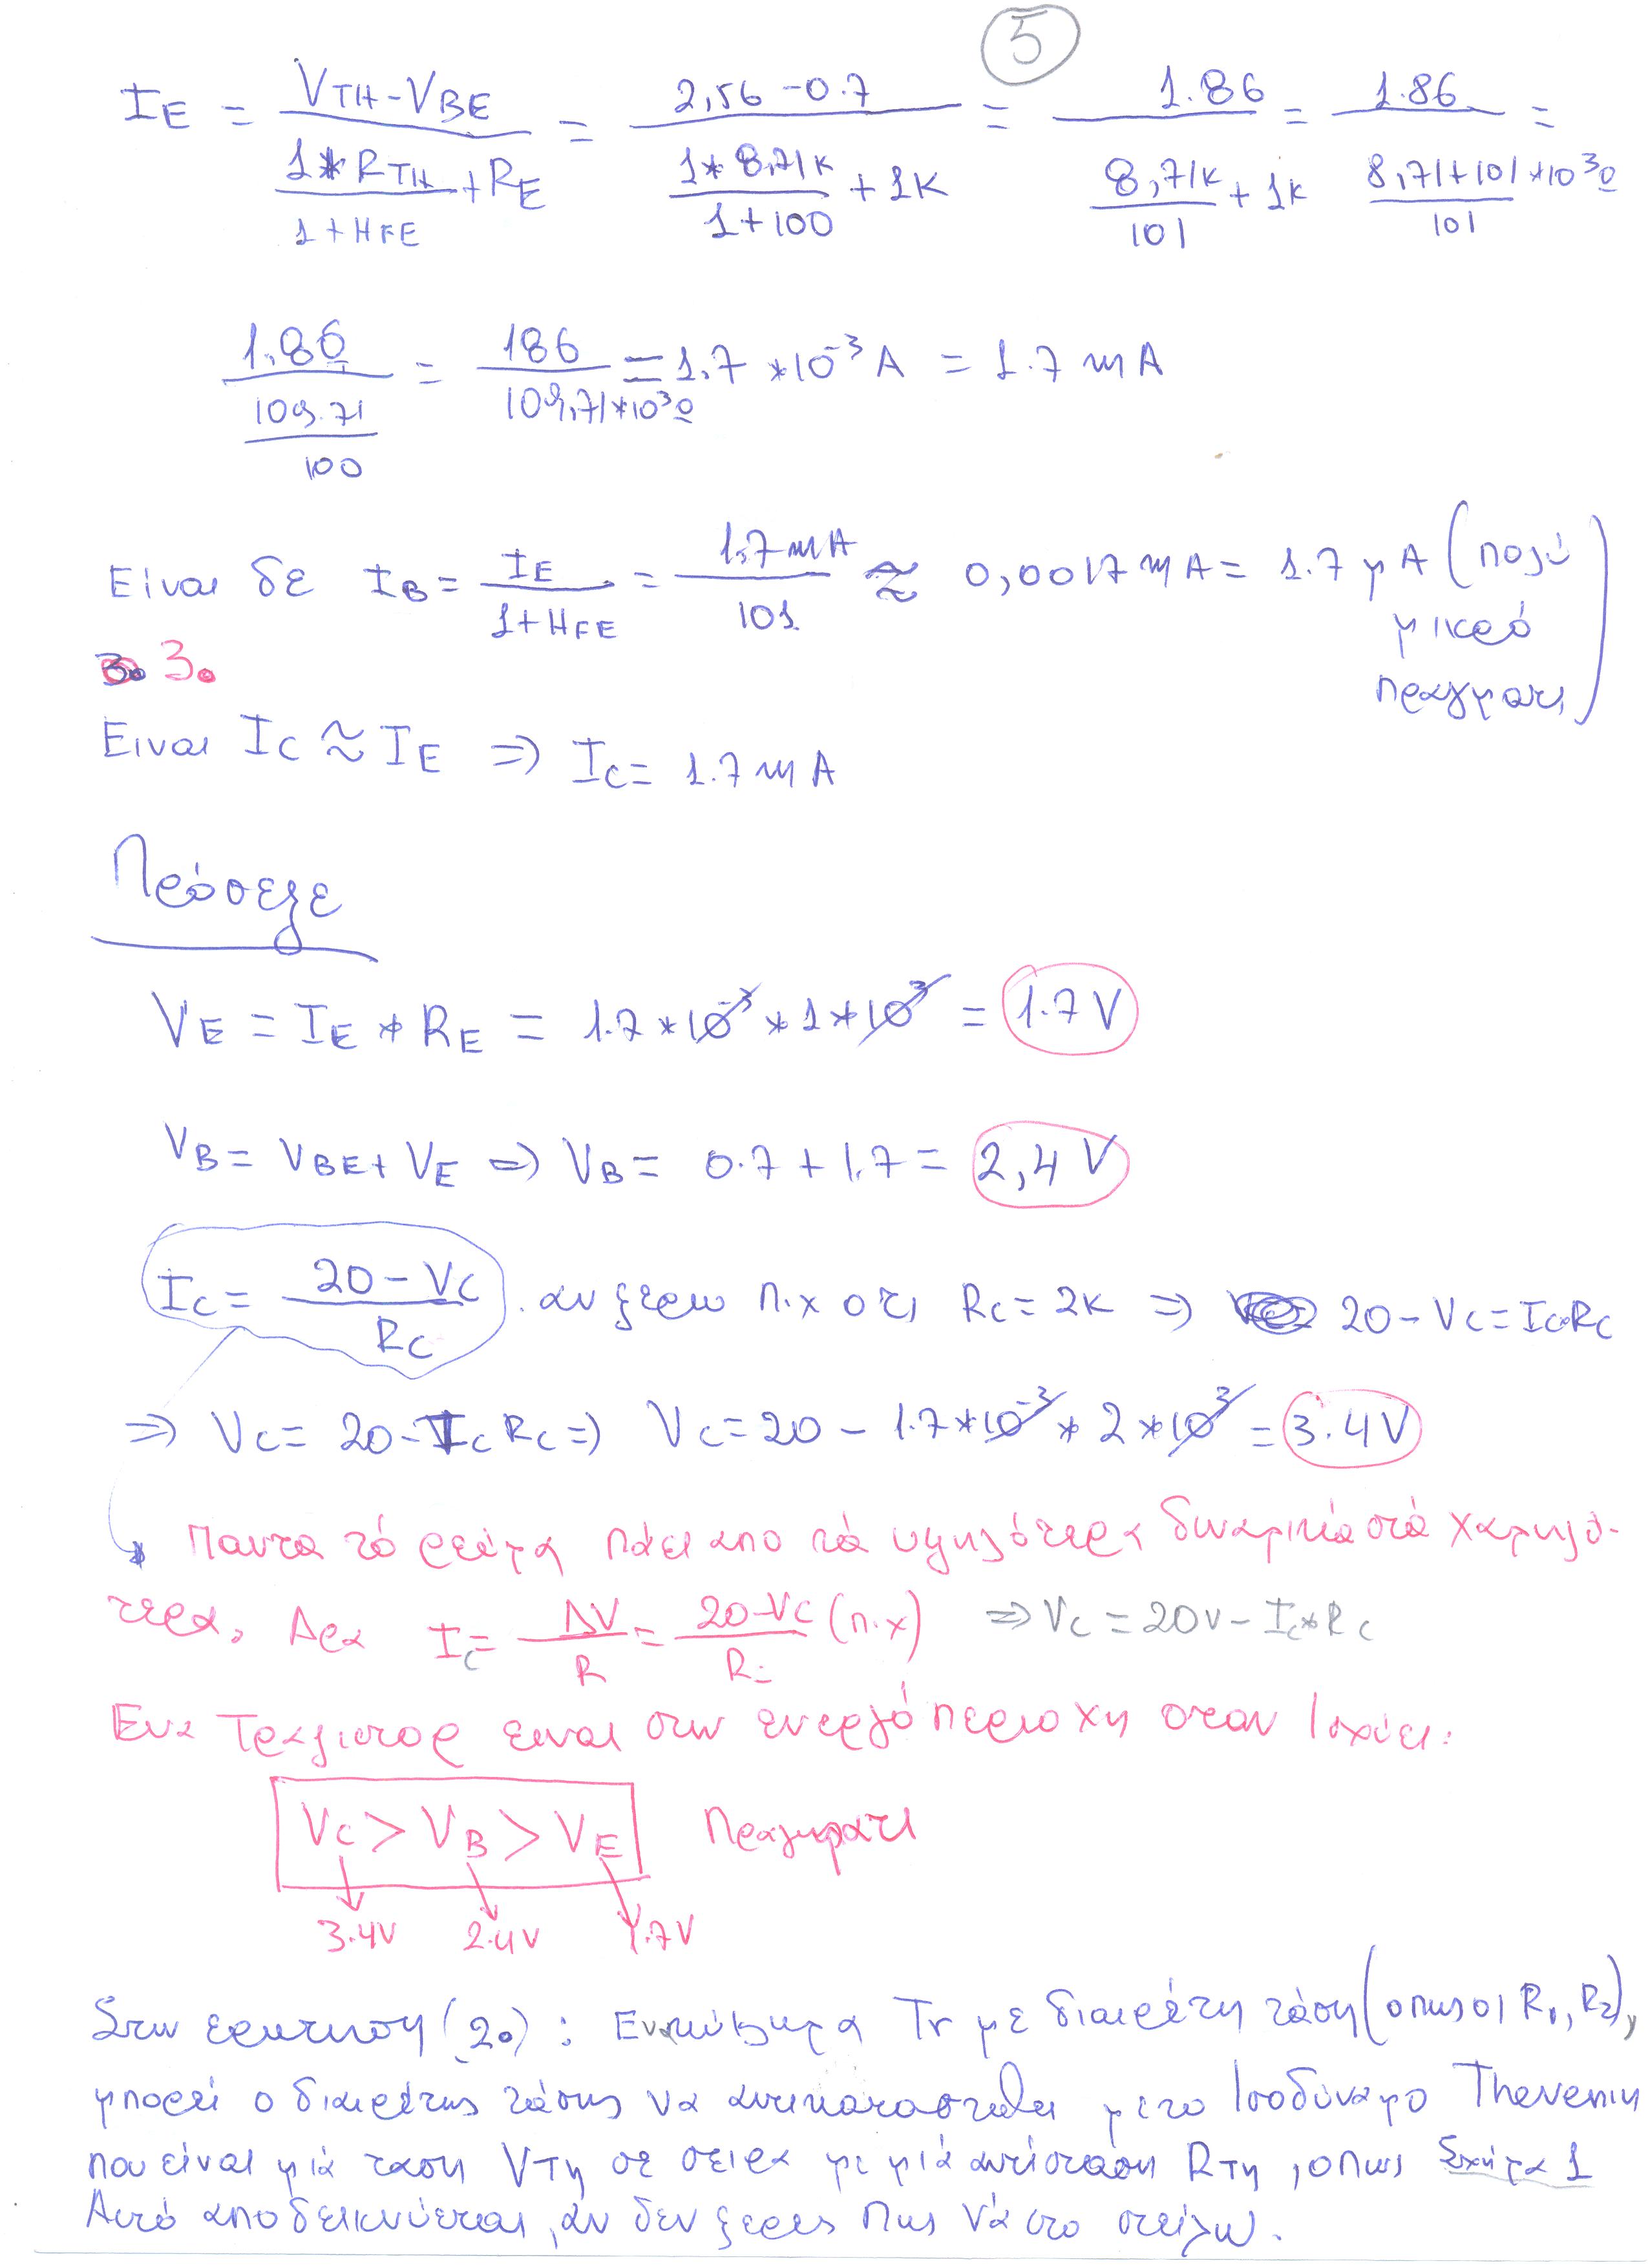 5
I_E = (V_TH - V_BE) / (1*R_TH/(1+H_FE) + R_E) = (2,56 - 0.7) / (1*8,71K/(1+100) + 1K) = 1.86 / (8,71K/101 + 1K) = 1.86 / ((8,71+101*10³Ω)/101) =
1.86 / (109.71/100) = 186 / (109,71*10³Ω) = 1,7 *10⁻³ A = 1.7 mA
Είναι δε I_B = I_E/(1+H_FE) = 1,7 mA/101 ≈ 0,0017 mA = 1.7 μA (πολύ
μικρό
πραγματι)
3. 3.
Ειναι I_C ≈ I_E ⇒ I_C = 1.7 mA
Πρόσεξε
V_E = I_E * R_E = 1.7 *10⁻³ * 1*10³ = 1.7 V
V_B = V_BE + V_E ⇒ V_B = 0.7 + 1.7 = 2,4 V
I_C = (20 - V_C)/R_C . αν ξερω π.χ οτι R_C = 2K ⇒ 20 - V_C = I_C·R_C
⇒ V_C = 20 - I_C R_C ⇒ V_C = 20 - 1.7*10⁻³ * 2*10³ = 3.4V
* Παντα τό ρεύμα πάει απο τά υψηλότερα δυναμικά στά χαμηλό-
τερα. Αρα I_C = ΔV/R = (20-V_C)/R_C (π.χ) ⇒ V_C = 20V - I_C*R_C
Ενα Τραζιστορ ειναι στην ενεργό περιοχη οταν Ισχύει:
V_C > V_B > V_E Πραγματι
3.4V 2.4V 1.7V
Στην ερωτηση (2.) : Ενα κύκλωμα Tr με διαιρέτη τάση (οπως οι R1, R2),
μπορεί ο διαιρέτης τάσης να αντικατασταθει με το Ισοδύναμο Thevenin
που είναι μιά ταση V_TH σε σειρα με μιά αντίσταση R_TH , οπως Σχήμα 1
Αυτό αποδεικνύεται, αν δεν ξερεις πως νά στο στείλω.